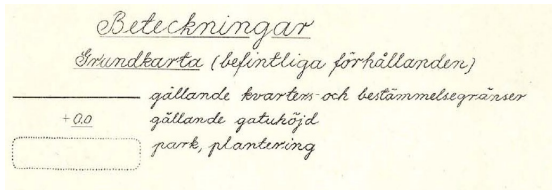 Beteckningar
Grundkarta (befintliga förhållanden)
gällande kvarters- och bestämmelsegränser
+0.0 gällande gatuhöjd
park, plantering